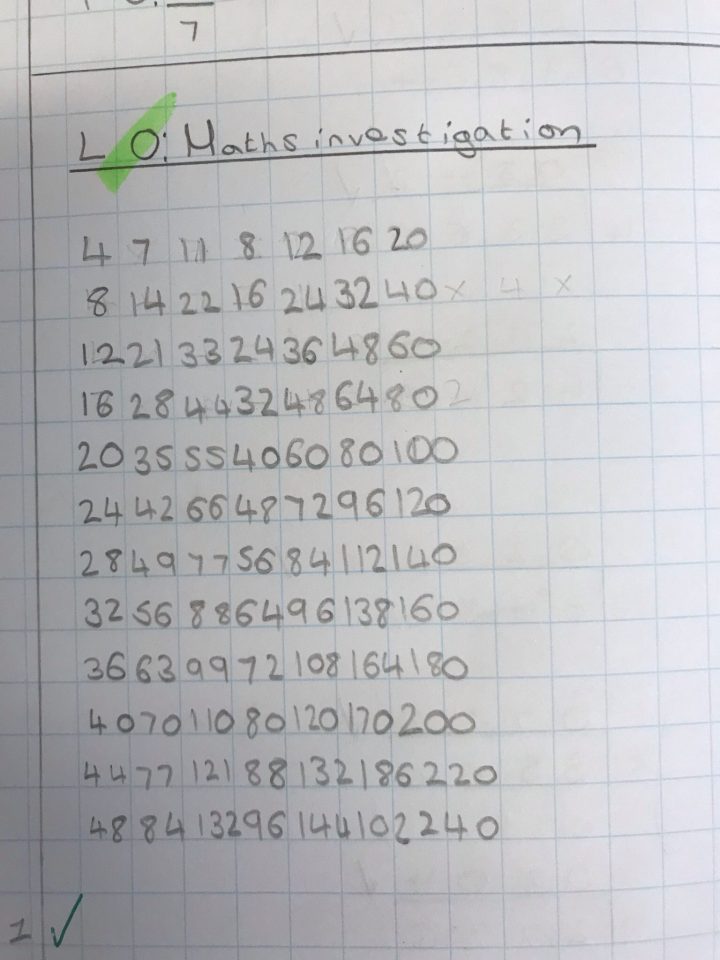 7
L O: Maths investigation
4 7 11 8 12 16 20
8 14 22 16 24 32 40 x 4 x
12 21 33 24 36 48 60
16 28 44 32 48 64 80 2
20 35 55 40 60 80 100
24 42 66 48 72 96 120
28 49 77 56 84 112 140
32 56 88 64 96 138 160
36 63 99 72 108 164 180
40 70 110 80 120 170 200
44 77 121 88 132 186 220
48 84 132 96 144 102 240
1 ✓